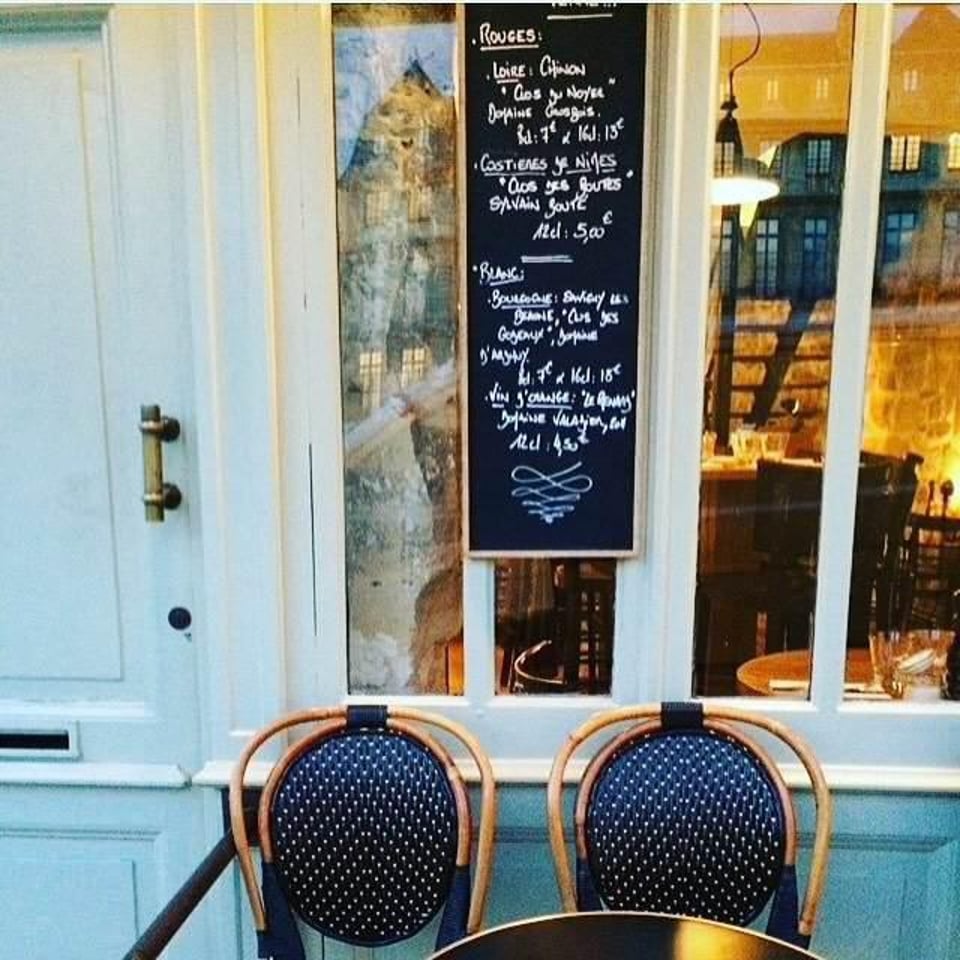 . ROUGES:
. LOIRE: CHINON
"CLOS DU NOYER"
DOMAINE GROSBOIS.
8cl: 7€ 16cl: 13€
. COSTIERES DE NIMES
"CLOS DES BOUTES"
SYLVAIN BOUTÉ
12cl: 5,00€
. BLANC:
. BOURGOGNE: SAVIGNY LES
BEAUNE, "CLOS DES
GODEAUX", DOMAINE
D'ARDHUY.
8cl: 7€ 16cl: 13€
. VIN D'ORANGE:
DOMAINE
12cl: 4,50€